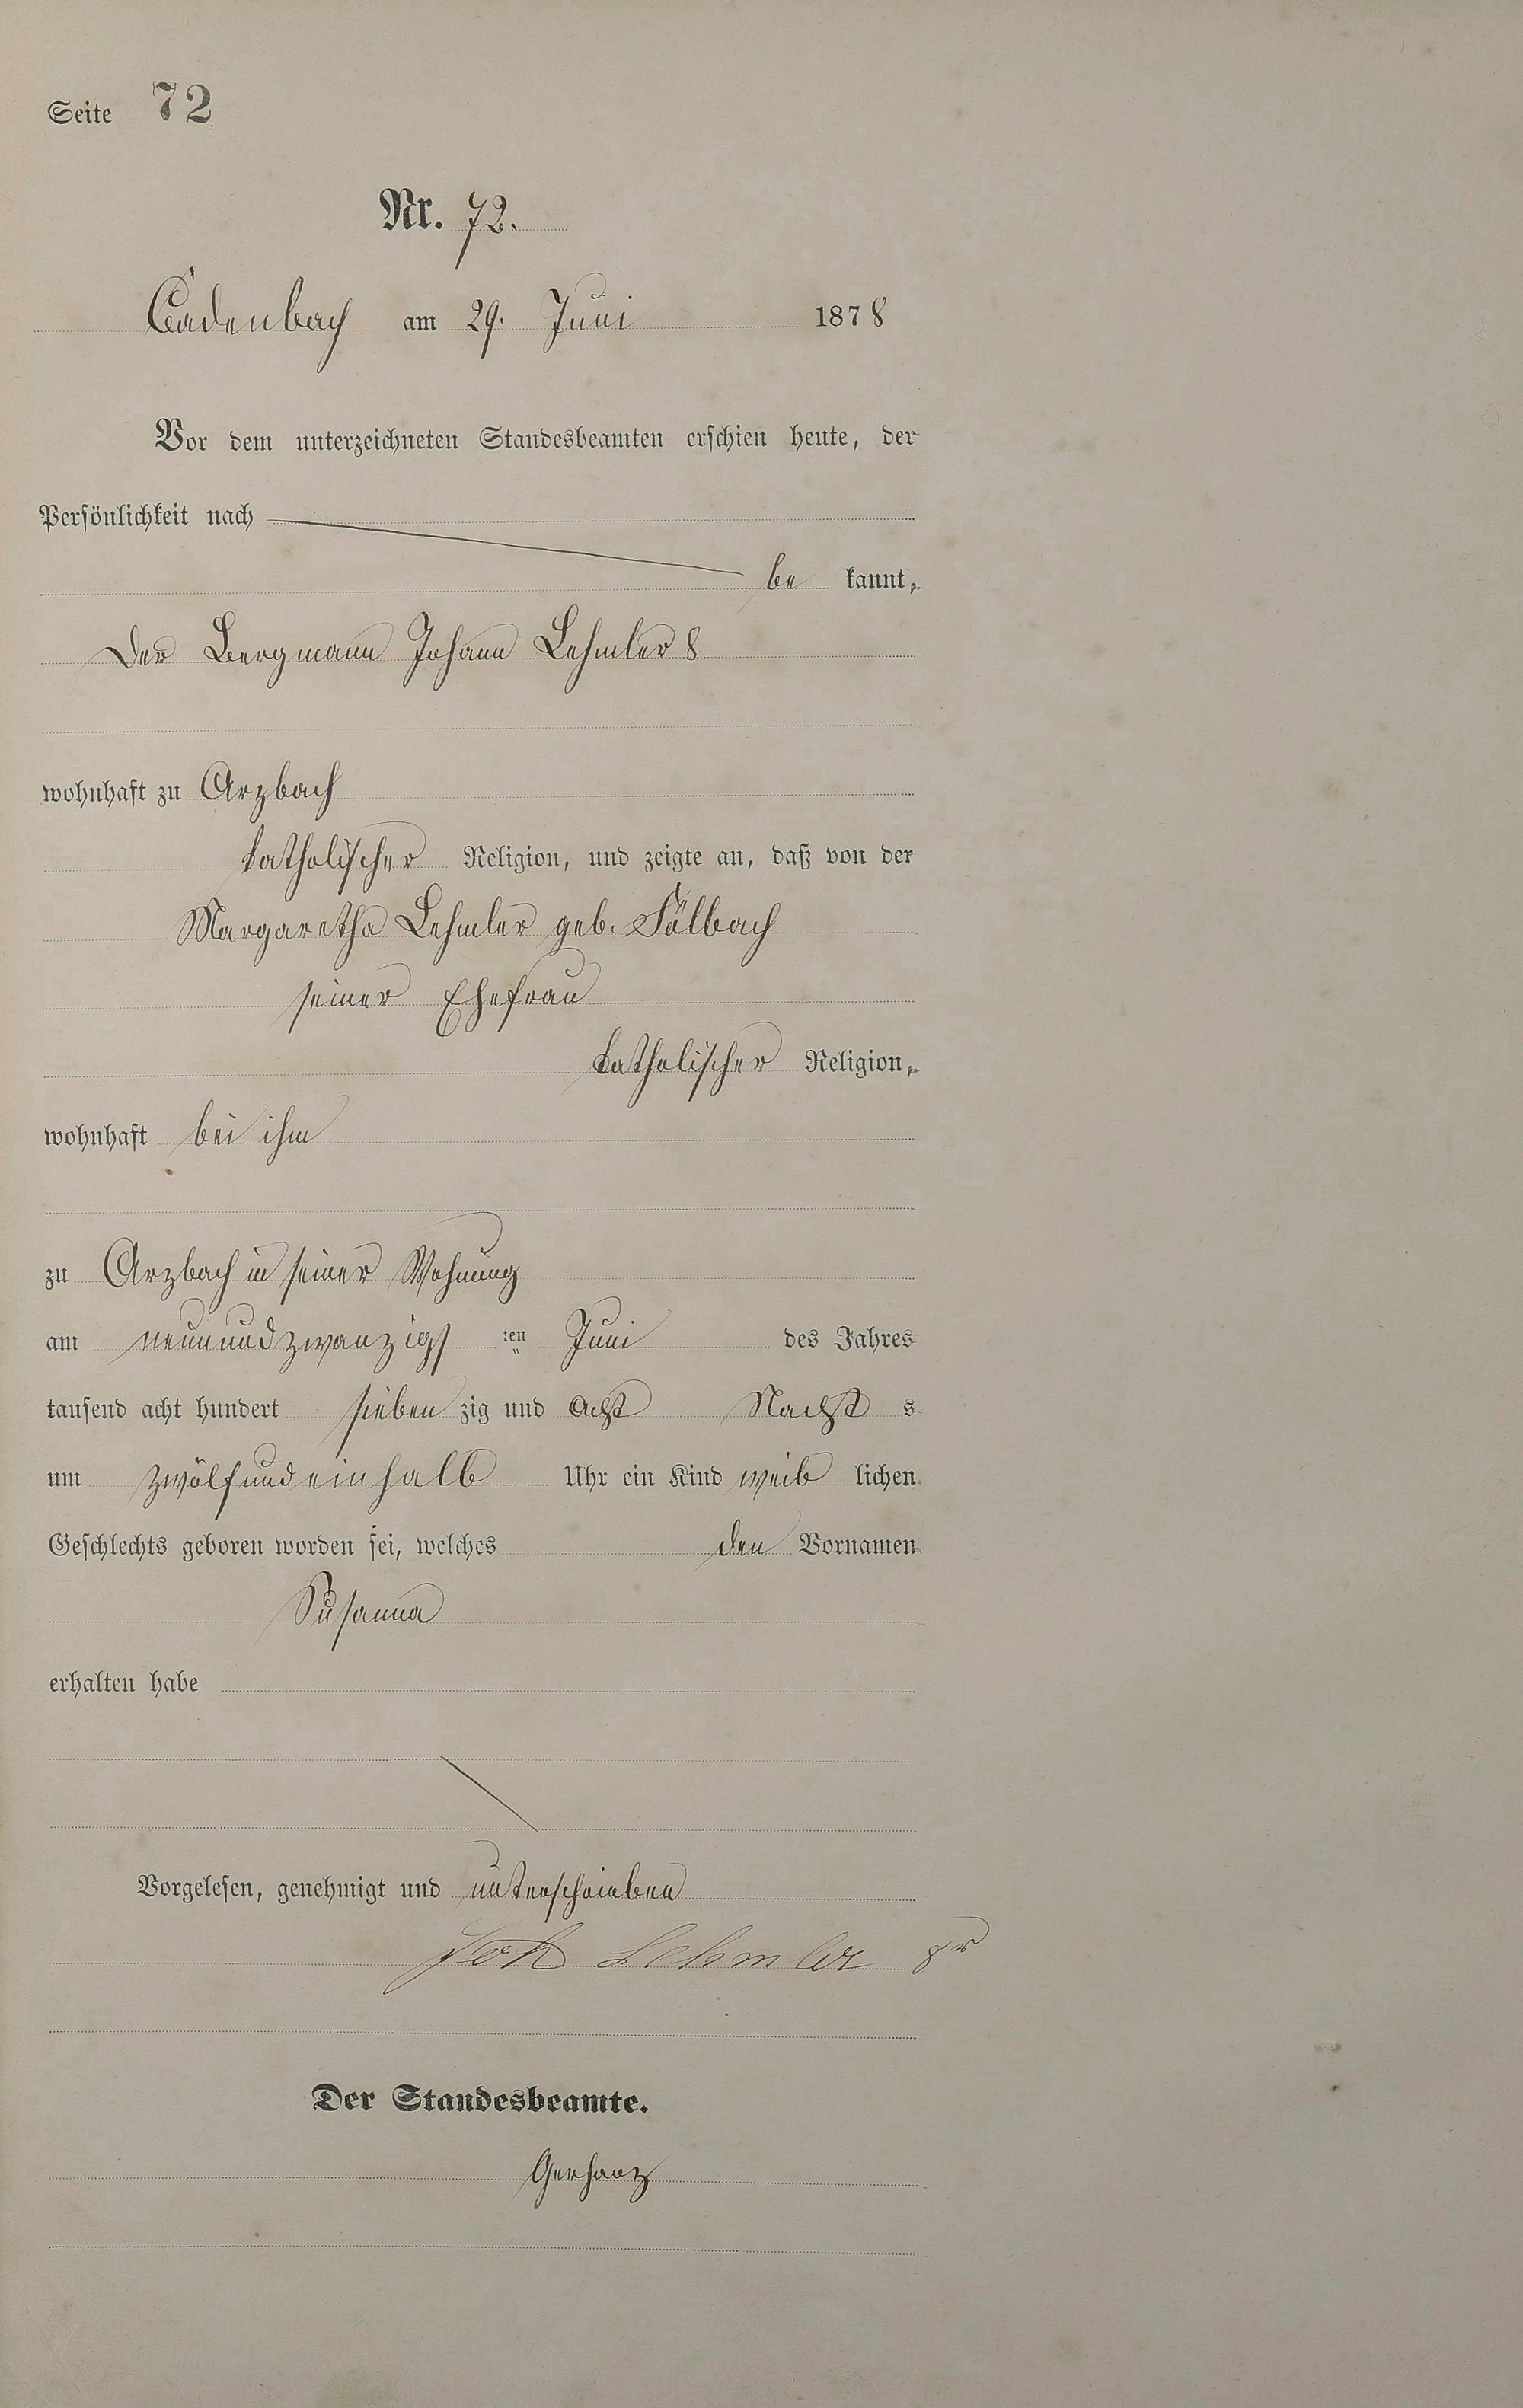 Seite 72
Nr. 72.
Cadenbach am 29. Juni 1878
Vor dem unterzeichneten Standesbeamten erschien heute, der
Persönlichkeit nach
be kannt,
Der Bergmann Johann Lehmler 8
wohnhaft zu Arzbach
katholischer Religion, und zeigte an, daß von der
Margaretha Lehmler geb. Fölbach
seiner Ehefrau
katholischer Religion,
wohnhaft bei ihm
zu Arzbach in seiner Wohnung
am neunundzwanzigs ten Juni des Jahres
tausend acht hundert sieben zig und acht Nacht s
um zwölfundeinhalb Uhr ein Kind weib lichen
Geschlechts geboren worden sei, welches den Vornamen
Susanna
erhalten habe
Vorgelesen, genehmigt und unterschrieben
Joh Lehmler 8r
Der Standesbeamte.
Gerharz